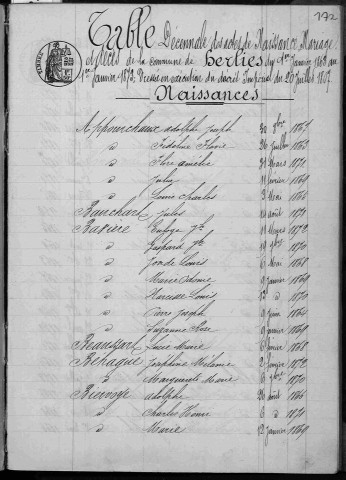 172
Table
Décennale des actes de Naissance, Mariage
et Décès de la commune de Herlies du 1er Janvier 1863 au
1er Janvier 1873, Dressée en exécution du décret Impérial du 20 Juillet 1807.
Naissances
Appourchaux adolphe Joseph 30 1867
d Fidéline Flore 26 Juillet 1865
d Flore amélie 31 Mars 1871
d Julie 11 février 1869
d Louis Charles 3 Mai 1866
Banchart Jules août 1871
Basure 11 Mars 1872
d Gaspard Jh 19 1870
d Louis 6 Mai 1868
d Marie 9 Janvier 1869
d Narcisse Louis d 1870
d Pierre Joseph 9 Juin 1864
d Suzanne Rose 9 Janvier 1869
Beaussart Marie février 1868
Behague Joséphine Mélanie 2 1872
d Marguerite Marie 6 1870
adolphe 26 août 1866
d Charles Henri 6 d 1871
d Marie 12 Janvier 1869